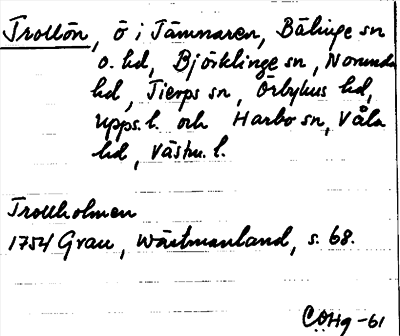 Trollön, ö i Tämnaren, Bälinge sn
o. hd, Björklinge sn, Norunda
hd, Tierps sn, Örbyhus hd,
Upps. l. och Harbo sn, Våla
hd, Västm. l.
Trollholmen
1754 Grau, Wästmanland, s. 68.
CÖHg -61